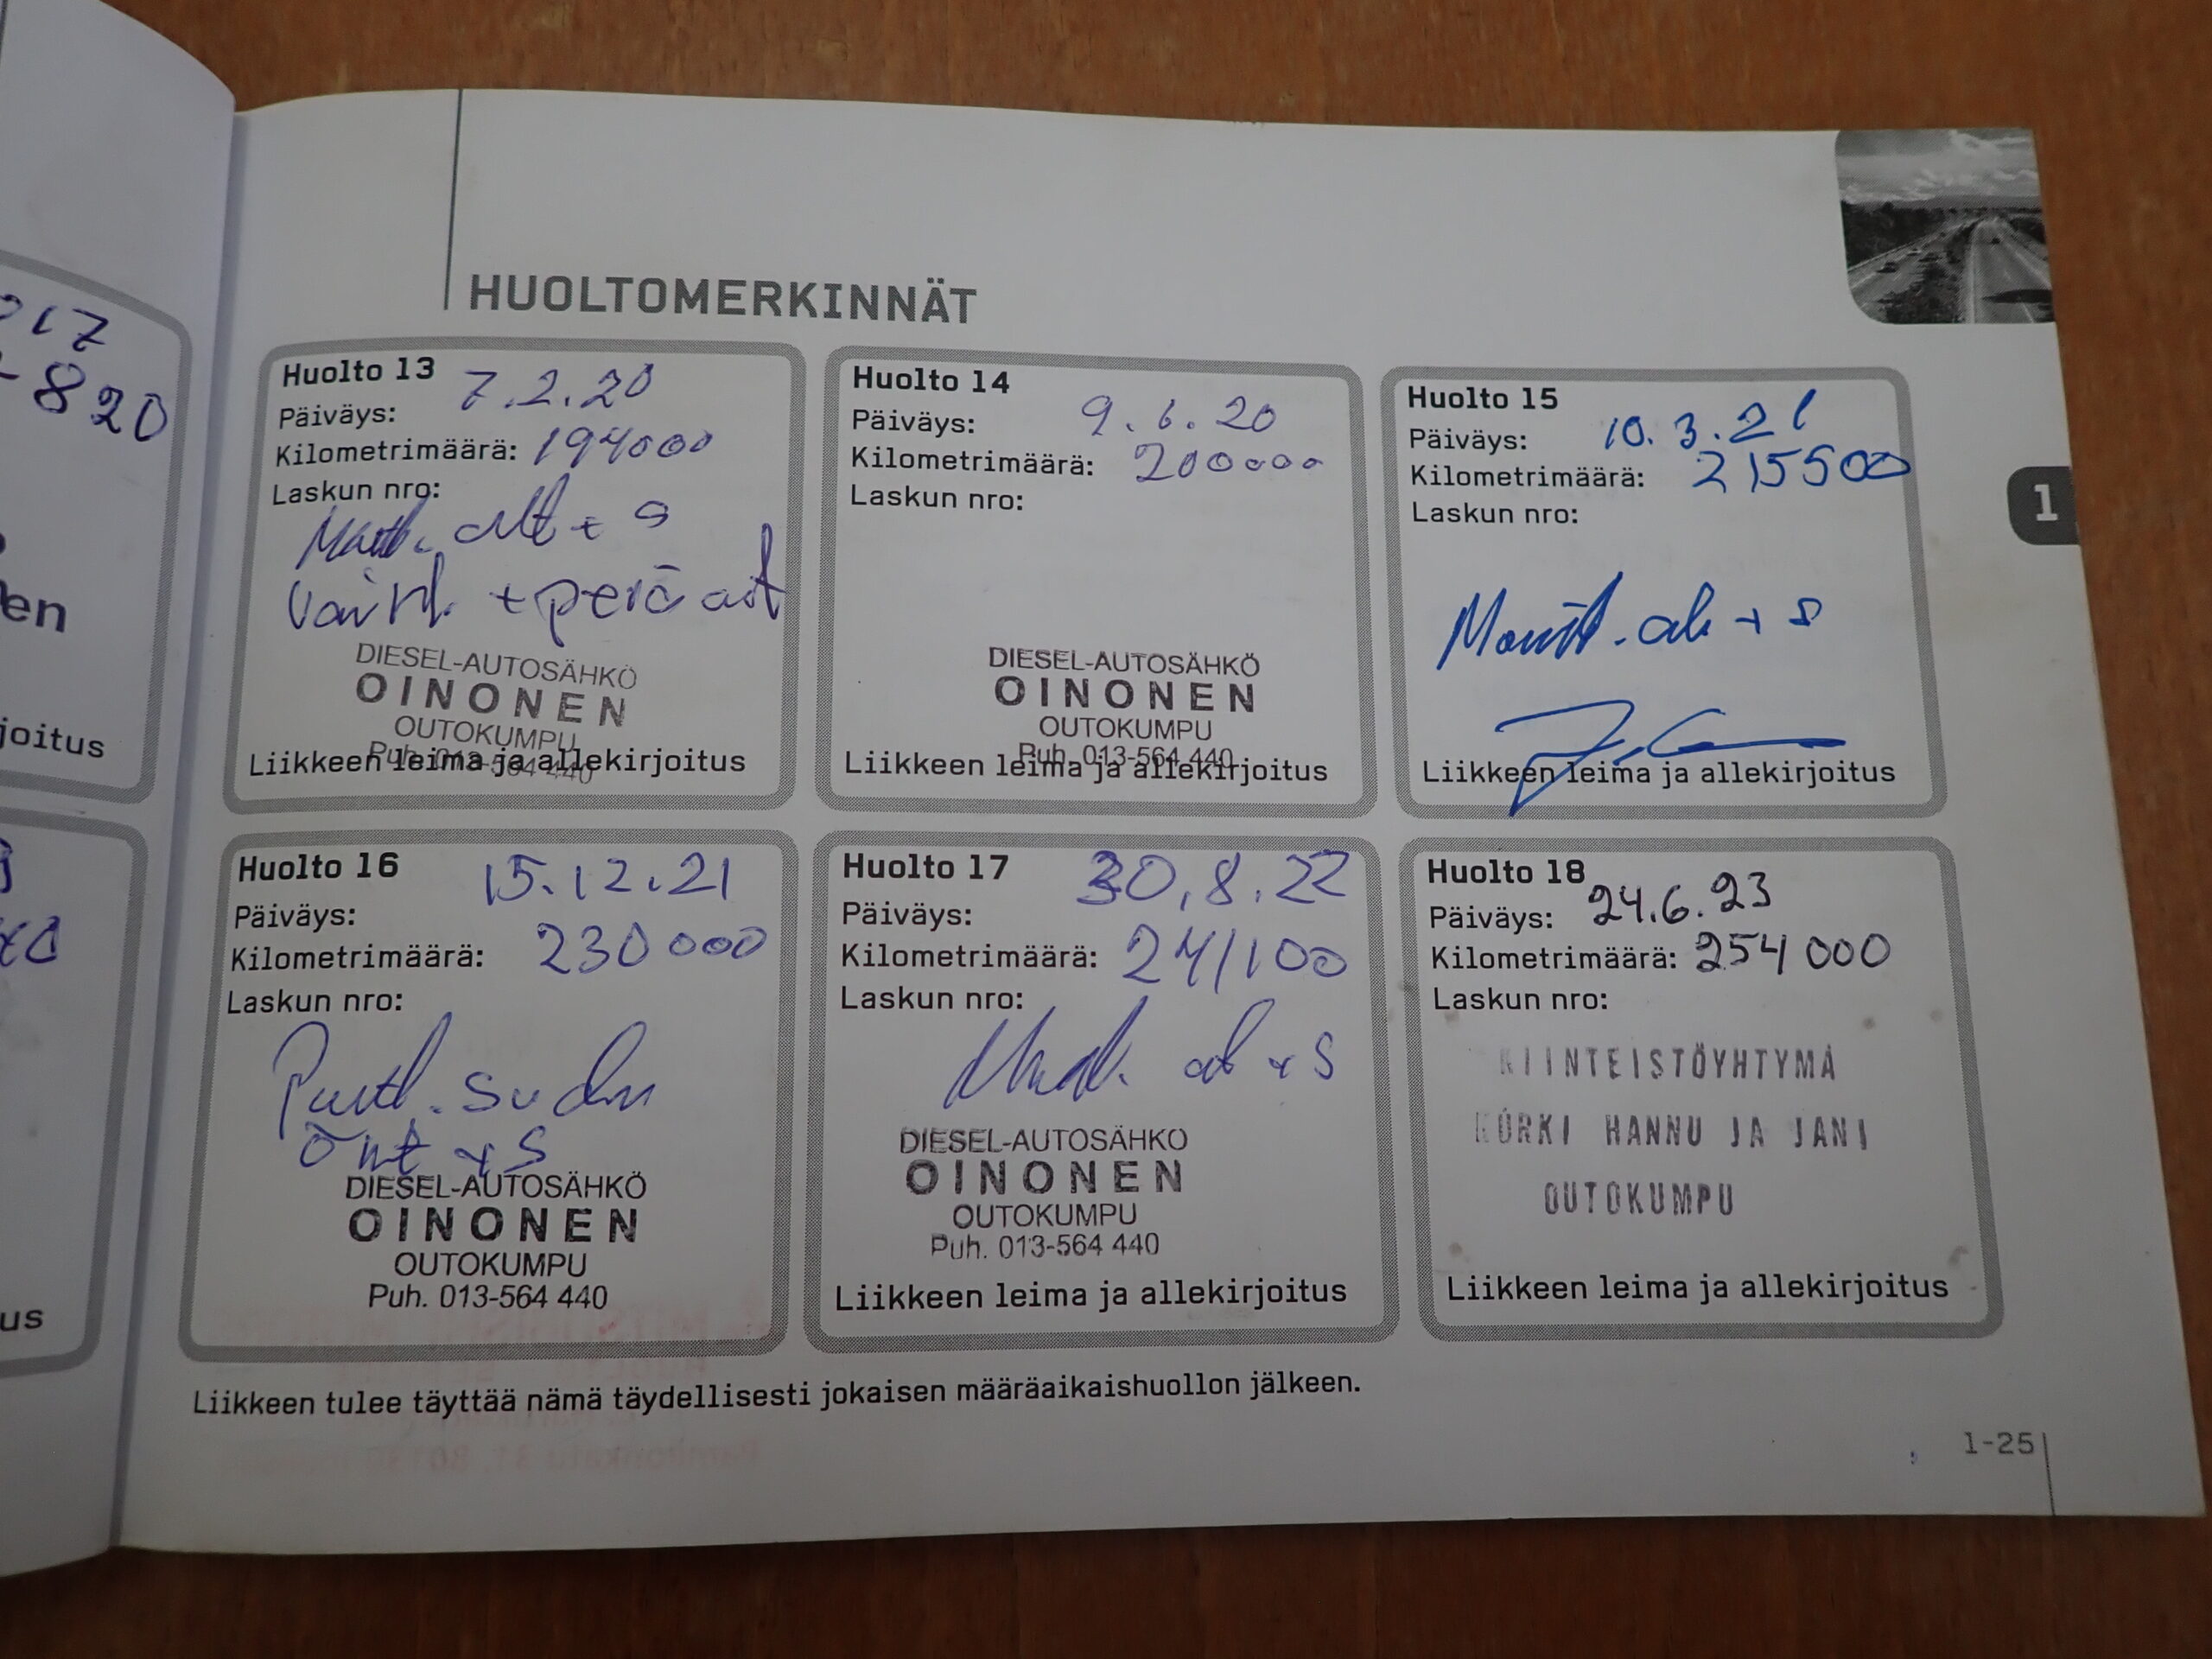 217
820
en
joitus
us
HUOLTOMERKINNÄT
Huolto 13
7.2.20
Päiväys:
Kilometrimäärä: 194000
Laskun nro:
+ S
+ perä
DIESEL-AUTOSÄHKÖ
OINONEN
OUTOKUMPU
Puh. 013-564 440
Liikkeen leima ja allekirjoitus
Huolto 14
Päiväys: 9.6.20
Kilometrimäärä: 200000
Laskun nro:
DIESEL-AUTOSÄHKÖ
OINONEN
OUTOKUMPU
Puh. 013-564 440
Liikkeen leima ja allekirjoitus
Huolto 15
Päiväys: 10.3.21
Kilometrimäärä: 215500
Laskun nro:
+ S
Liikkeen leima ja allekirjoitus
Huolto 16
15.12.21
Päiväys:
Kilometrimäärä: 230000
Laskun nro:
+ S
DIESEL-AUTOSÄHKÖ
OINONEN
OUTOKUMPU
Puh. 013-564 440
Huolto 17
30.8.22
Päiväys:
Kilometrimäärä: 241100
Laskun nro:
+ S
DIESEL-AUTOSÄHKÖ
OINONEN
OUTOKUMPU
Puh. 013-564 440
Liikkeen leima ja allekirjoitus
Huolto 18
Päiväys: 24.6.23
Kilometrimäärä: 254000
Laskun nro:
KIINTEISTÖYHTYMÄ
HANNU JA JANI
OUTOKUMPU
Liikkeen leima ja allekirjoitus
1
Liikkeen tulee täyttää nämä täydellisesti jokaisen määräaikaishuollon jälkeen.
1-25